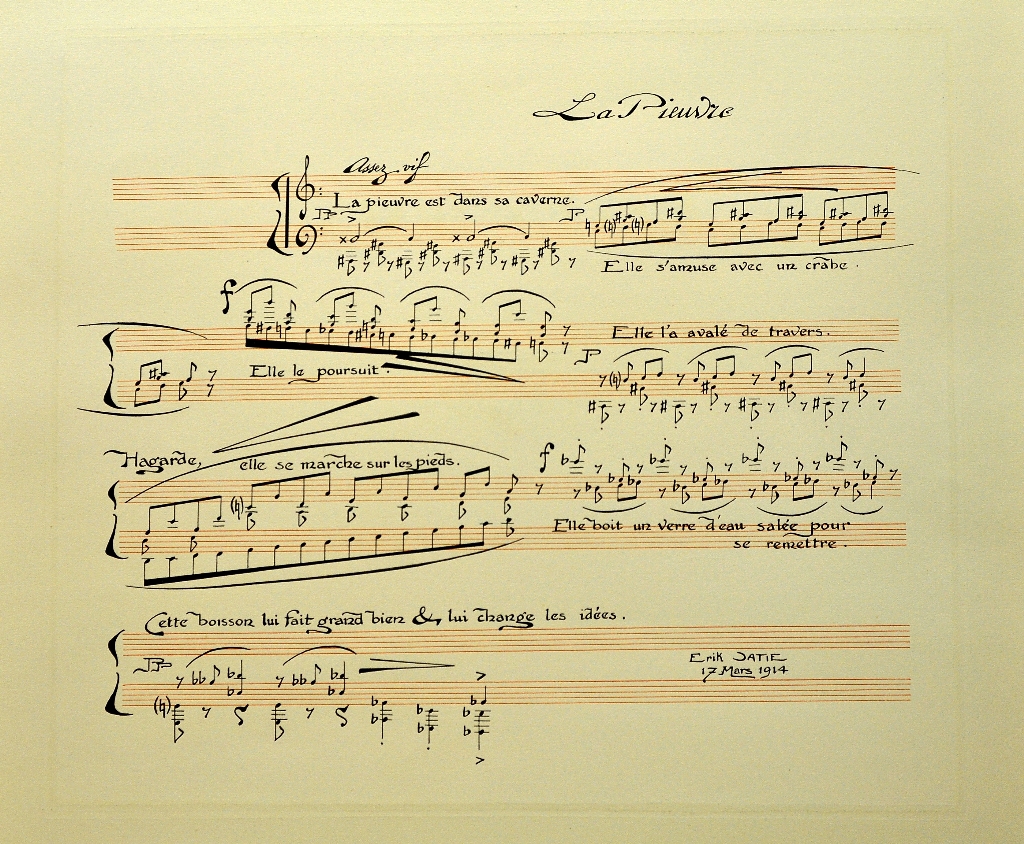 La Pieuvre
Assez vif
La pieuvre est dans sa caverne.
Elle s'amuse avec un crabe.
Elle le poursuit.
Elle l'a avalé de travers.
Hagarde, elle se marche sur les pieds.
Elle boit un verre d'eau salée pour
se remettre.
Cette boisson lui fait grand bien & lui change les idées.
Erik SATIE
17 Mars 1914